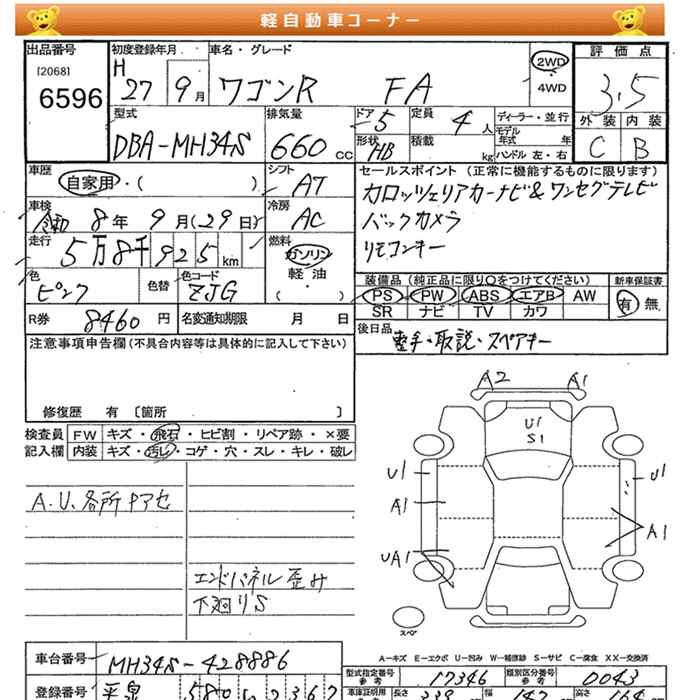 軽自動車コーナー
出品番号 初度登録年月 車名・グレード 評価点
[2068] H
6596 27 9月 ワゴンR FA 2WD 4WD 3.5
型式 排気量 ドア 定員 ディーラー・並行 外装 内装
DBA-MH34S 660cc 5 4人 モデル年式 年 C B
形状 HB 積載 kg ハンドル 左・右
車歴 シフト セールスポイント (正常に機能するものに限ります)
自家用・( ) AT カロッツェリアカーナビ&ワンセグテレビ
車検 冷房 バックカメラ
令和 8年 9月(29日) AC リモコンキー
走行 燃料
5万8千925km ガソリン
軽油
( )
色 色替 色コード 装備品 (純正品に限り○をつけてください) 新車保証書
ピンク ZJG PS PW ABS エアB AW 有 無
SR ナビ TV カワ
R券 8460円 名変通知期限 月 日 後日品
整手・取説・スペアキー
注意事項申告欄(不具合内容等は具体的に記入して下さい)
修復歴 有 〔箇所 〕
検査員 FW キズ・飛石・ヒビ割・リペア跡・×要
記入欄 内装 キズ・汚し・コゲ・穴・スレ・キレ・破レ
A2 A1
U1
S1
U1 U1
A1
A1
UA1
A.U.各所
エンドパネル歪み
下廻りS
スペア
A─キズ E─エクボ U─凹み W─補修跡 S─サビ C─腐食 XX─交換済
車台番号 MH34S-428886
型式指定番号 参考 17346 類別区分番号 参考 0043
登録番号 平泉 580
車庫証明用 参考 長さ 339 幅 147 高さ